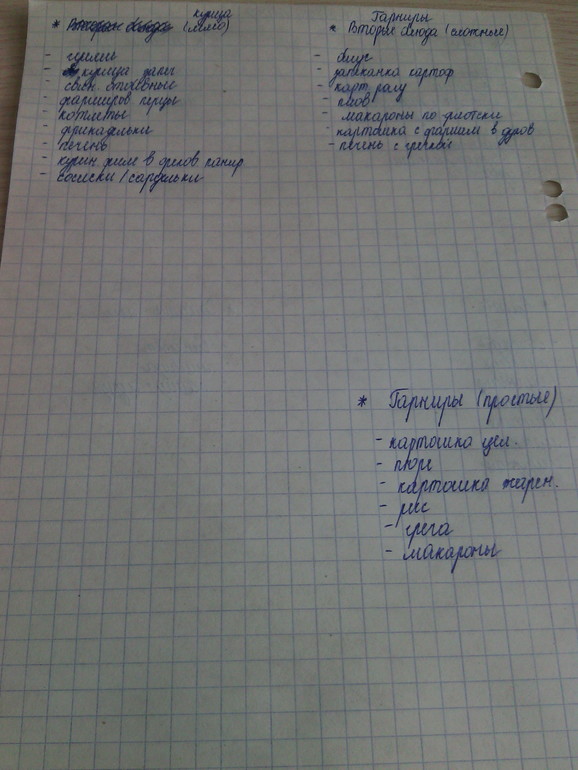 курица
* (мясо)
- курица запеч
- свин. отбивные
- фарширов перцы
- котлеты
- фрикадельки
- печень
- курин филе в орехов панир
- сосиски / сардельки
Гарниры
* Вторые блюда (сложные)
- запеканка картоф
- карт рагу
- плов
- макароны по флотски
- картошка с фаршем в духов
- печень с гречкой
* Гарниры (простые)
- картошка цел.
- пюре
- картошка жарен.
- рис
- греча
- макароны